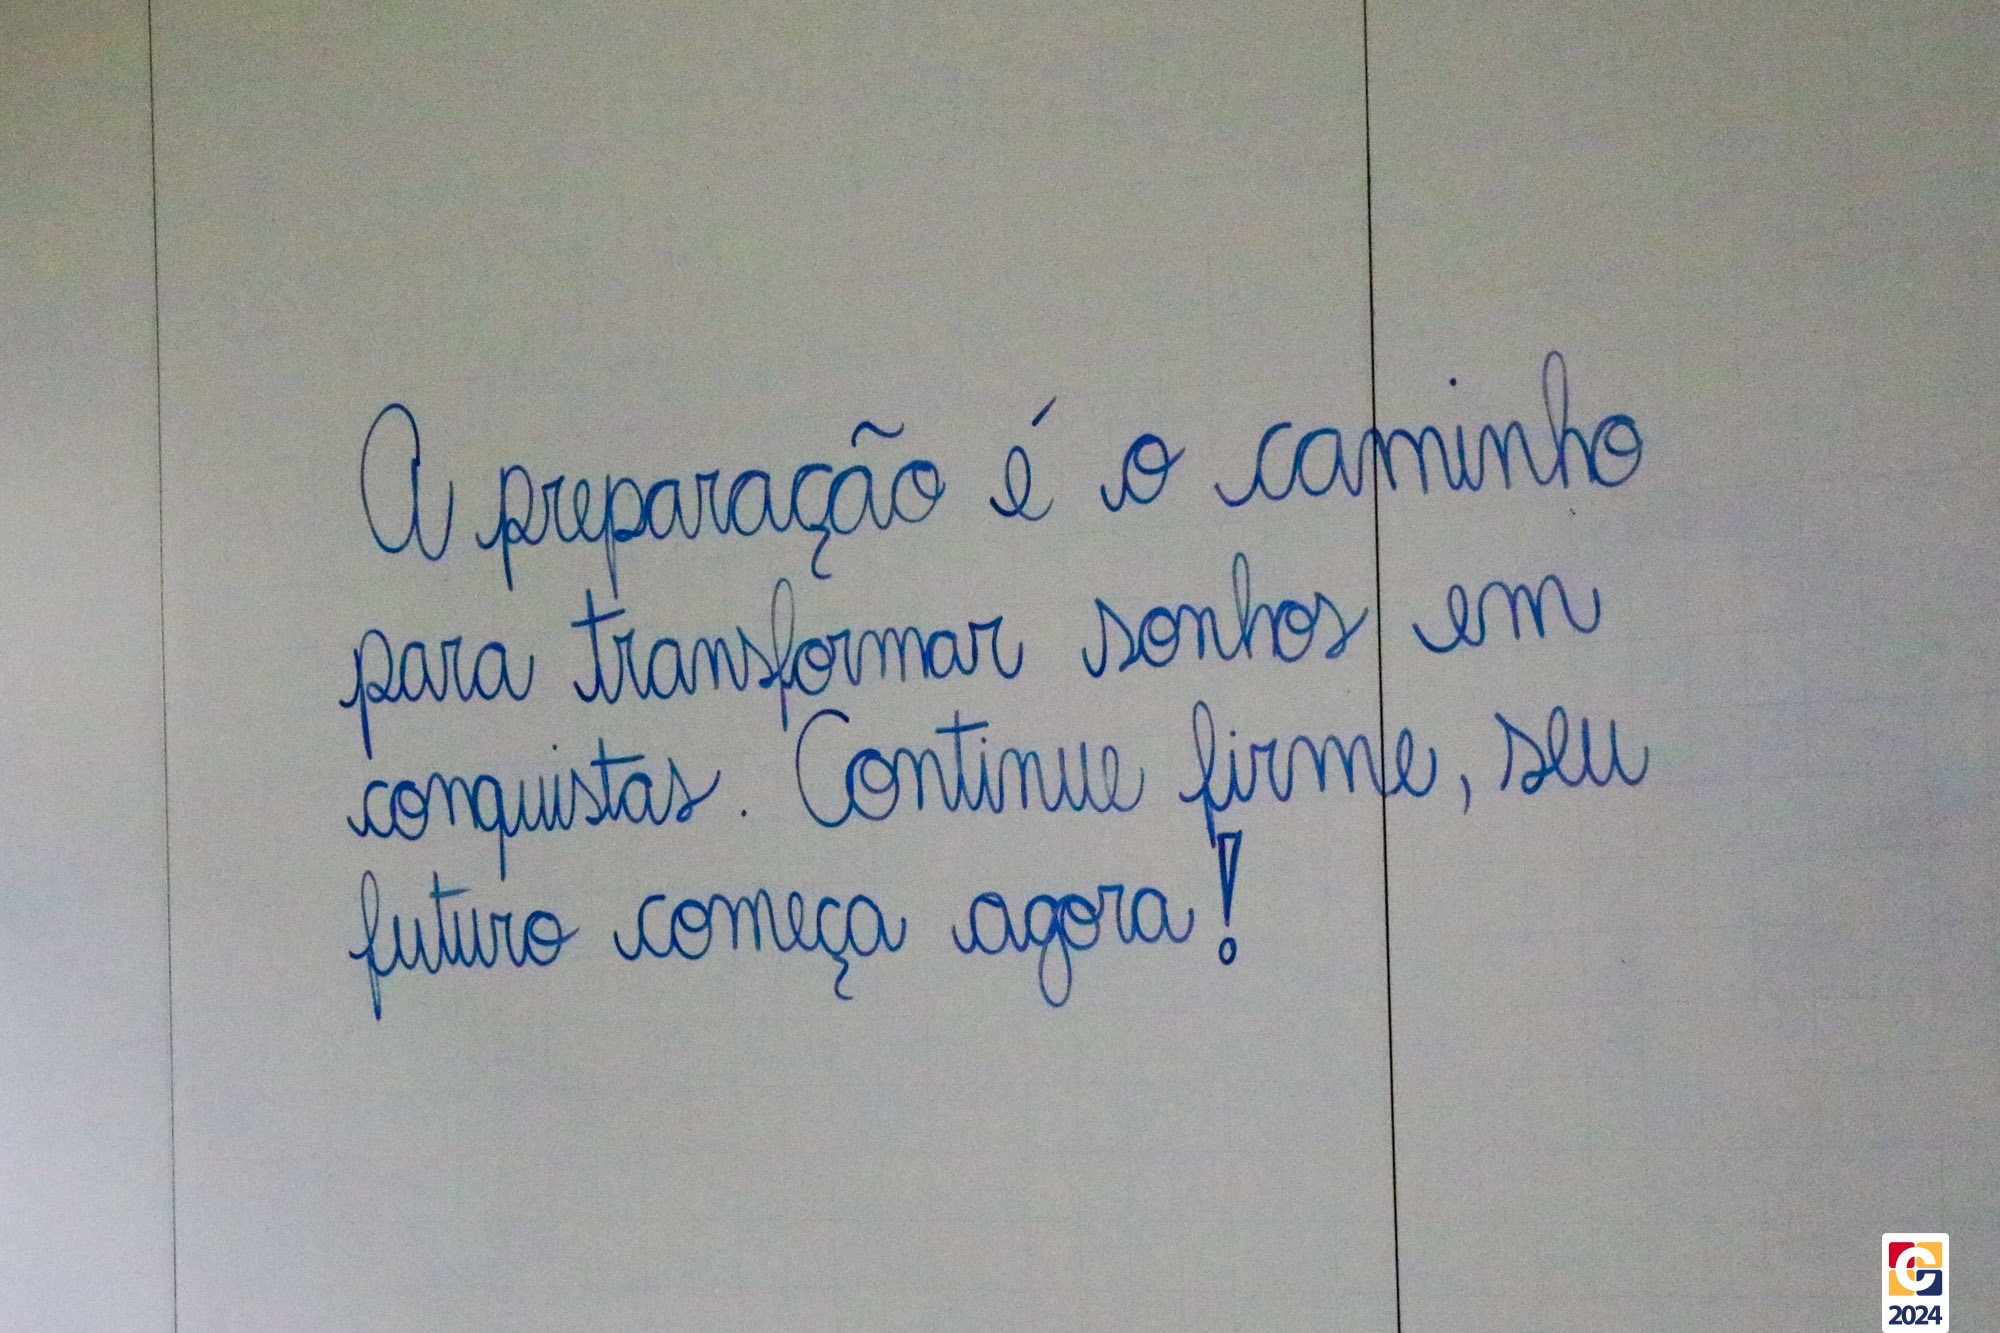 A preparação é o caminho
para transformar sonhos em
conquistas. Continue firme, seu
futuro começa agora!
2024